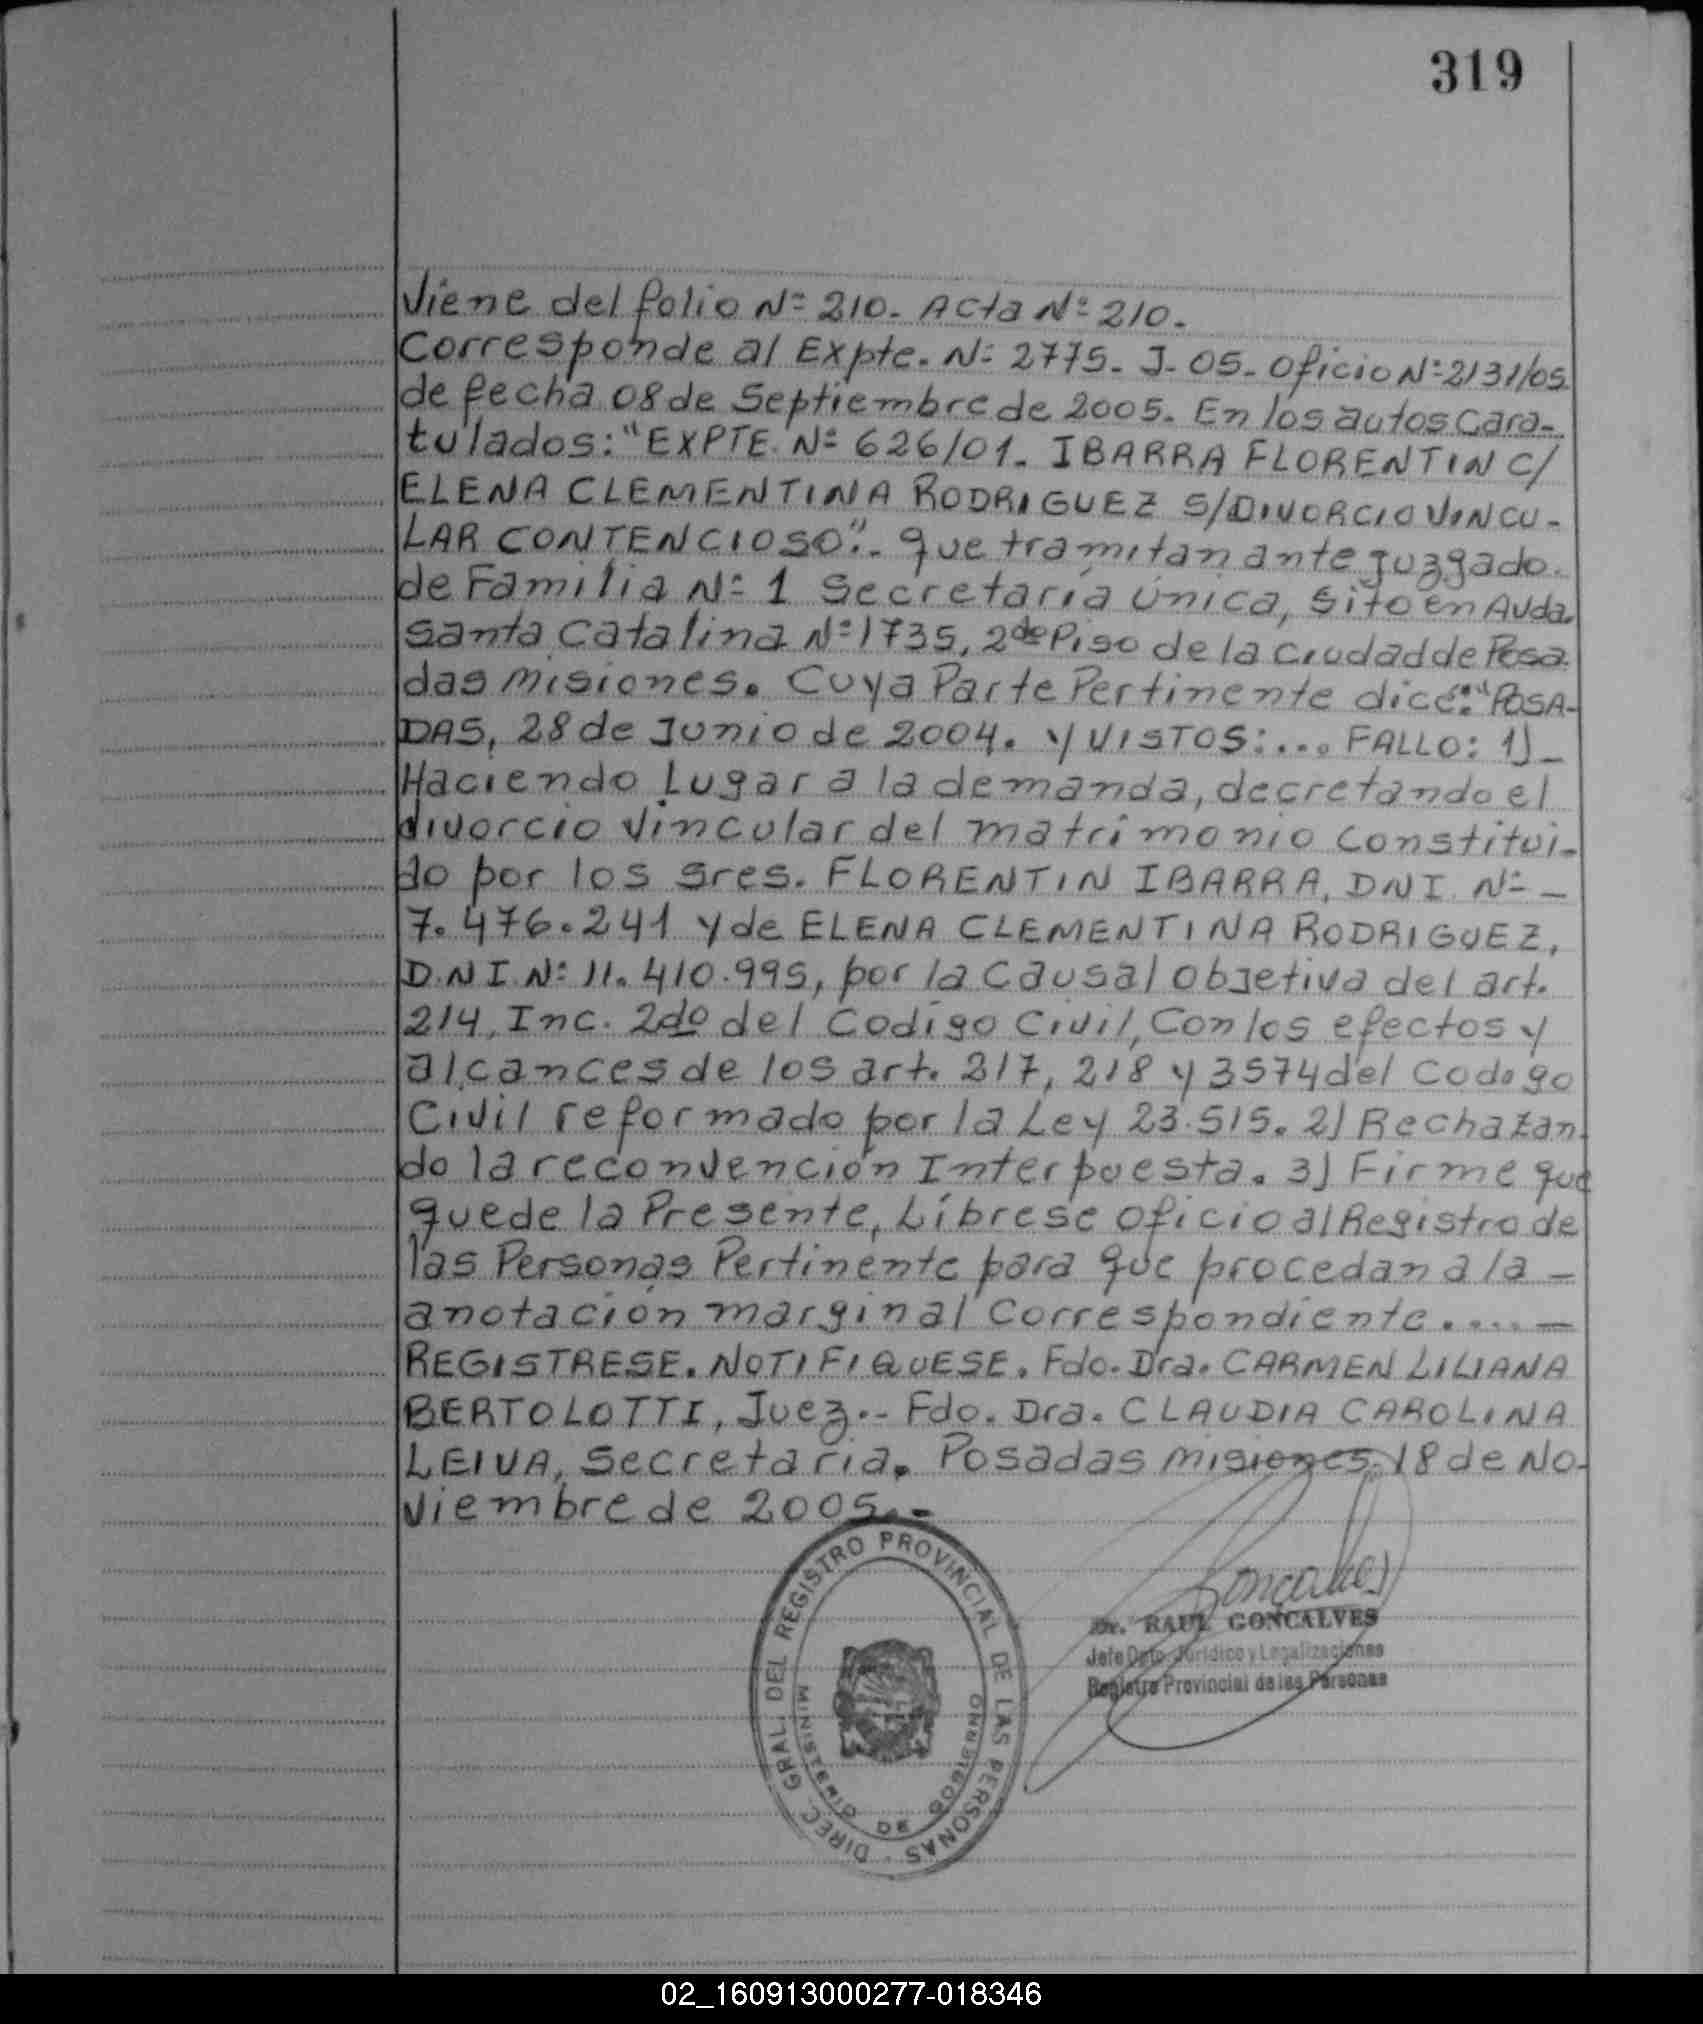 319
Viene del folio Nº 210. Acta Nº 210.
Corresponde al Expte. Nº 2775. J. 05. Oficio Nº 2131/05
de fecha 08 de Septiembre de 2005. En los autos Cara-
tulados: "EXPTE. Nº 626/01. IBARRA FLORENTIN C/
ELENA CLEMENTINA RODRIGUEZ S/DIVORCIO VINCU-
LAR CONTENCIOSO".- que tramitan ante Juzgado.
de Familia Nº 1 Secretaría única, sito en Avda.
Santa Catalina Nº 1735, 2do Piso de la Ciudad de Posa.
das Misiones. Cuya Parte Pertinente dice: "POSA-
DAS, 28 de Junio de 2004. Y VISTOS:... FALLO: 1) -
Haciendo Lugar a la demanda, decretando el
divorcio Vincular del matrimonio Constitui-
do por los Sres. FLORENTIN IBARRA, DNI. Nº -
7.476.241 y de ELENA CLEMENTINA RODRIGUEZ,
D.N.I. Nº 11.410.995, por la Causal Objetiva del art.
214, Inc. 2do del Codigo Civil, Con los efectos y
alcances de los art. 217, 218 y 3574 del Codigo
Civil reformado por la Ley 23.515. 2) Rechazan-
do la reconvención Interpuesta. 3) Firme que
quede la Presente, Líbrese Oficio al Registro de
las Personas Pertinente para que procedan a la -
anotación marginal Correspondiente..... -
REGISTRESE. NOTIFIQUESE. Fdo. Dra. CARMEN LILIANA
BERTOLOTTI, Juez.- Fdo. Dra. CLAUDIA CAROLINA
LEIVA, Secretaria. Posadas Misiones. 18 de No-
viembre de 2005.-
DIREC. GRAL. DEL REGISTRO PROVINCIAL DE LAS PERSONAS -
MINISTERIO DE GOBIERNO
Goncalves
Dr. RAUL GONCALVES
Jefe Dpto. Jurídico y Legalizaciones
Registro Provincial de las Personas
02_160913000277-018346